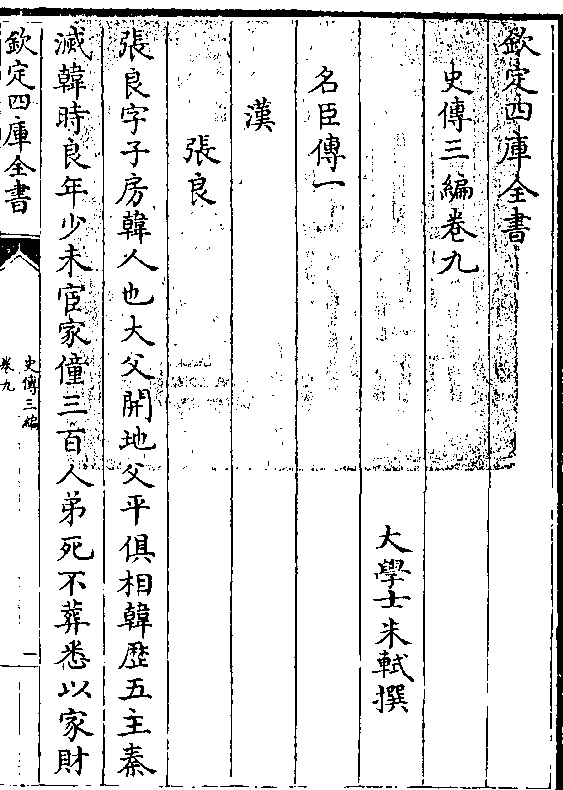 欽定四庫全書
史傳三編卷九
大學士朱軾撰
名臣傳一
漢
張良
張良字子房韓人也大父開地父平俱相韓歴五主秦
滅韓時良年少未宦家僮三百人弟死不葬悉以家財
欽定四庫全書
史傳三編
卷九
一